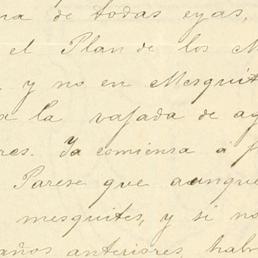 na de todas eyas,
el Plan de los M
y no en Mesquit
a la vajada de ag
res. Ya comiensa á f
Parese que aunque
mesquites, y si no
años anteriores habr